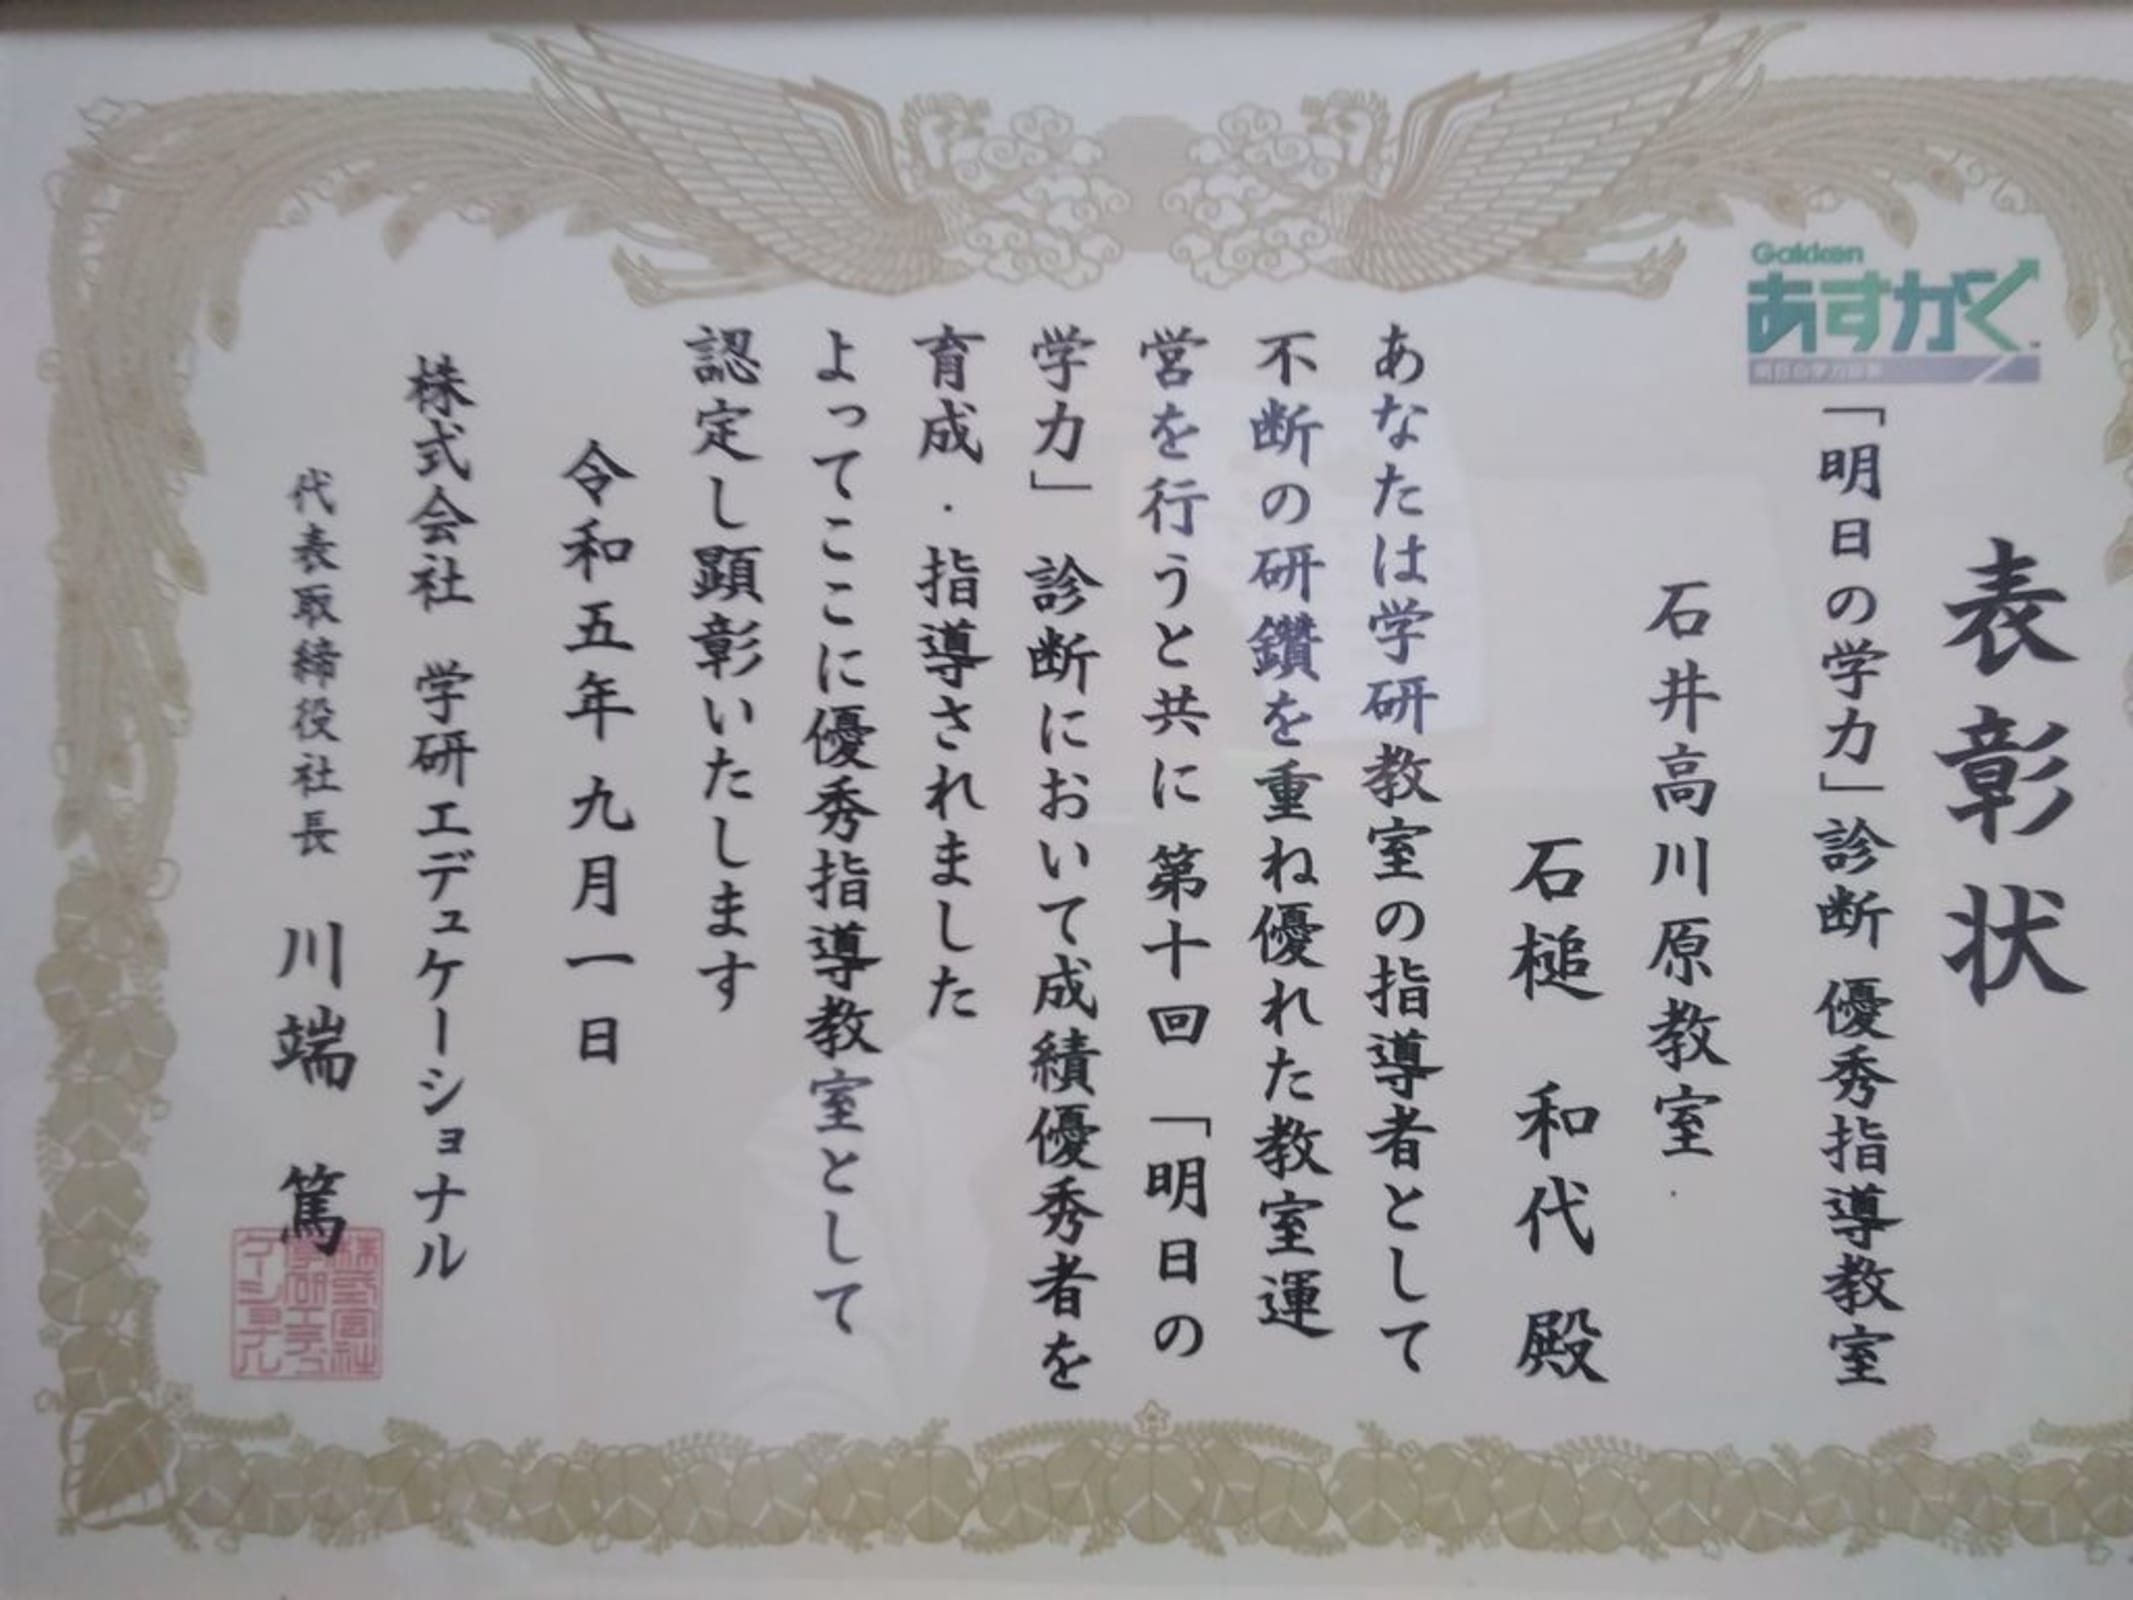 表彰状
Gakken
あすがく
「明日の学力」診断 優秀指導教室
石井高川原教室
石槌 和代 殿
あなたは学研教室の指導者として
不断の研鑽を重ね優れた教室運
営を行うと共に 第十回 「明日の
学力」 診断において成績優秀者を
育成・指導されました
よってここに優秀指導教室として
認定し顕彰いたします
令和五年九月一日
株式会社 学研エデュケーショナル
代表取締役社長 川端 篤
株式会社
学研エデュ
ケーショナル